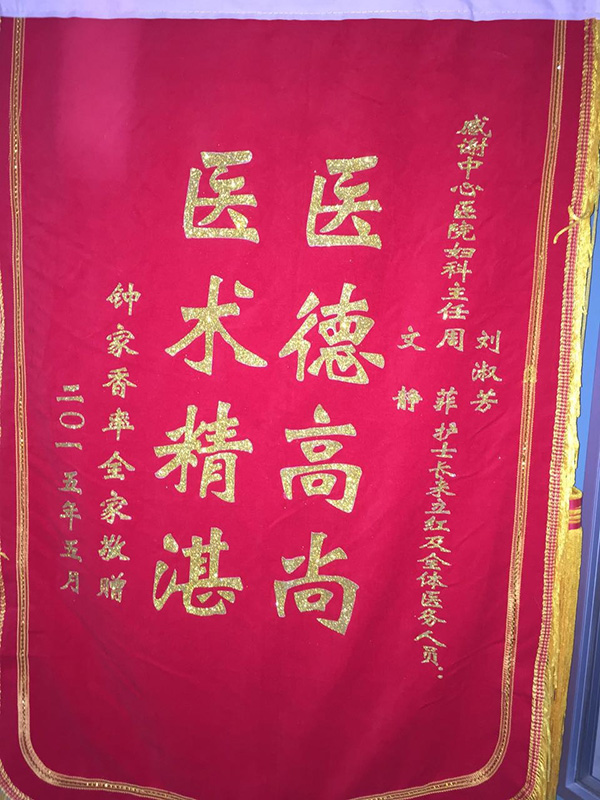 刘淑芳
感谢中心医院妇科主任周 菲护士长来立红及全体医务人员：
文 静
医德高尚
医术精湛
钟家香率全家敬赠
二〇一五年五月